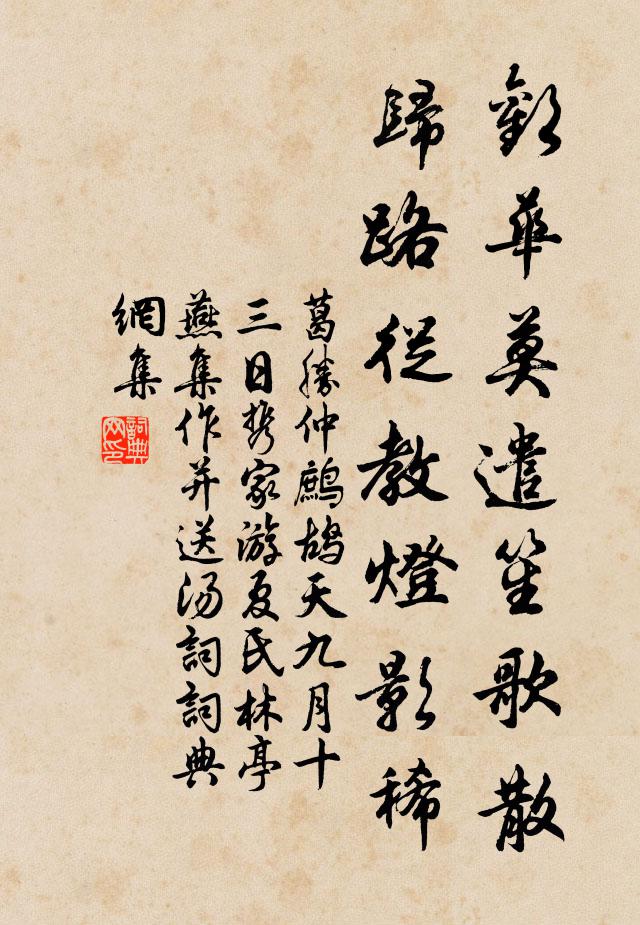 歡華莫遣笙歌散
歸路從教燈影稀
葛勝仲鷓鴣天九月十
三日攜家游夏氏林亭
燕集作并送湯詞詞典
網集
詞典网印